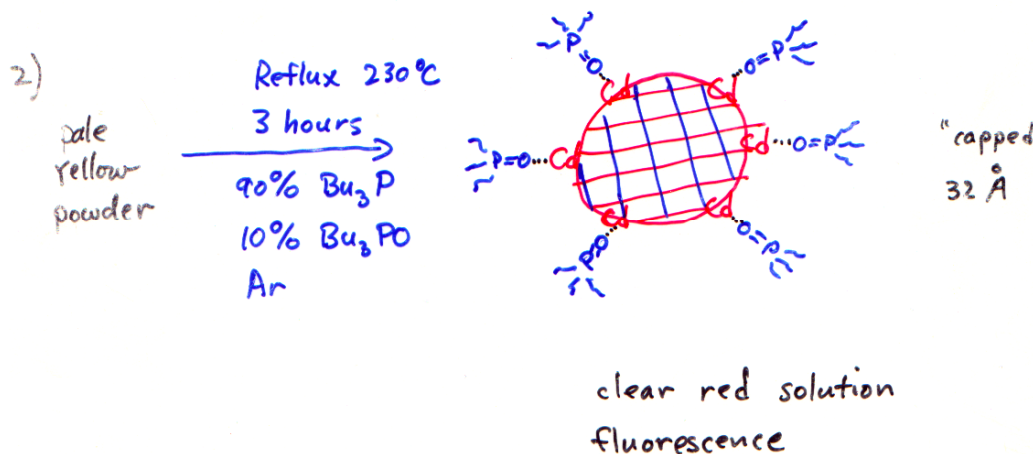 2)
pale
yellow
powder
Reflux 230°C
3 hours
90% Bu₃P
10% Bu₃PO
Ar
P=O···Cd
Cd···O=P
P=O···Cd
Cd···O=P
P=O···Cd
Cd···O=P
"capped
32 Å
clear red solution
fluorescence